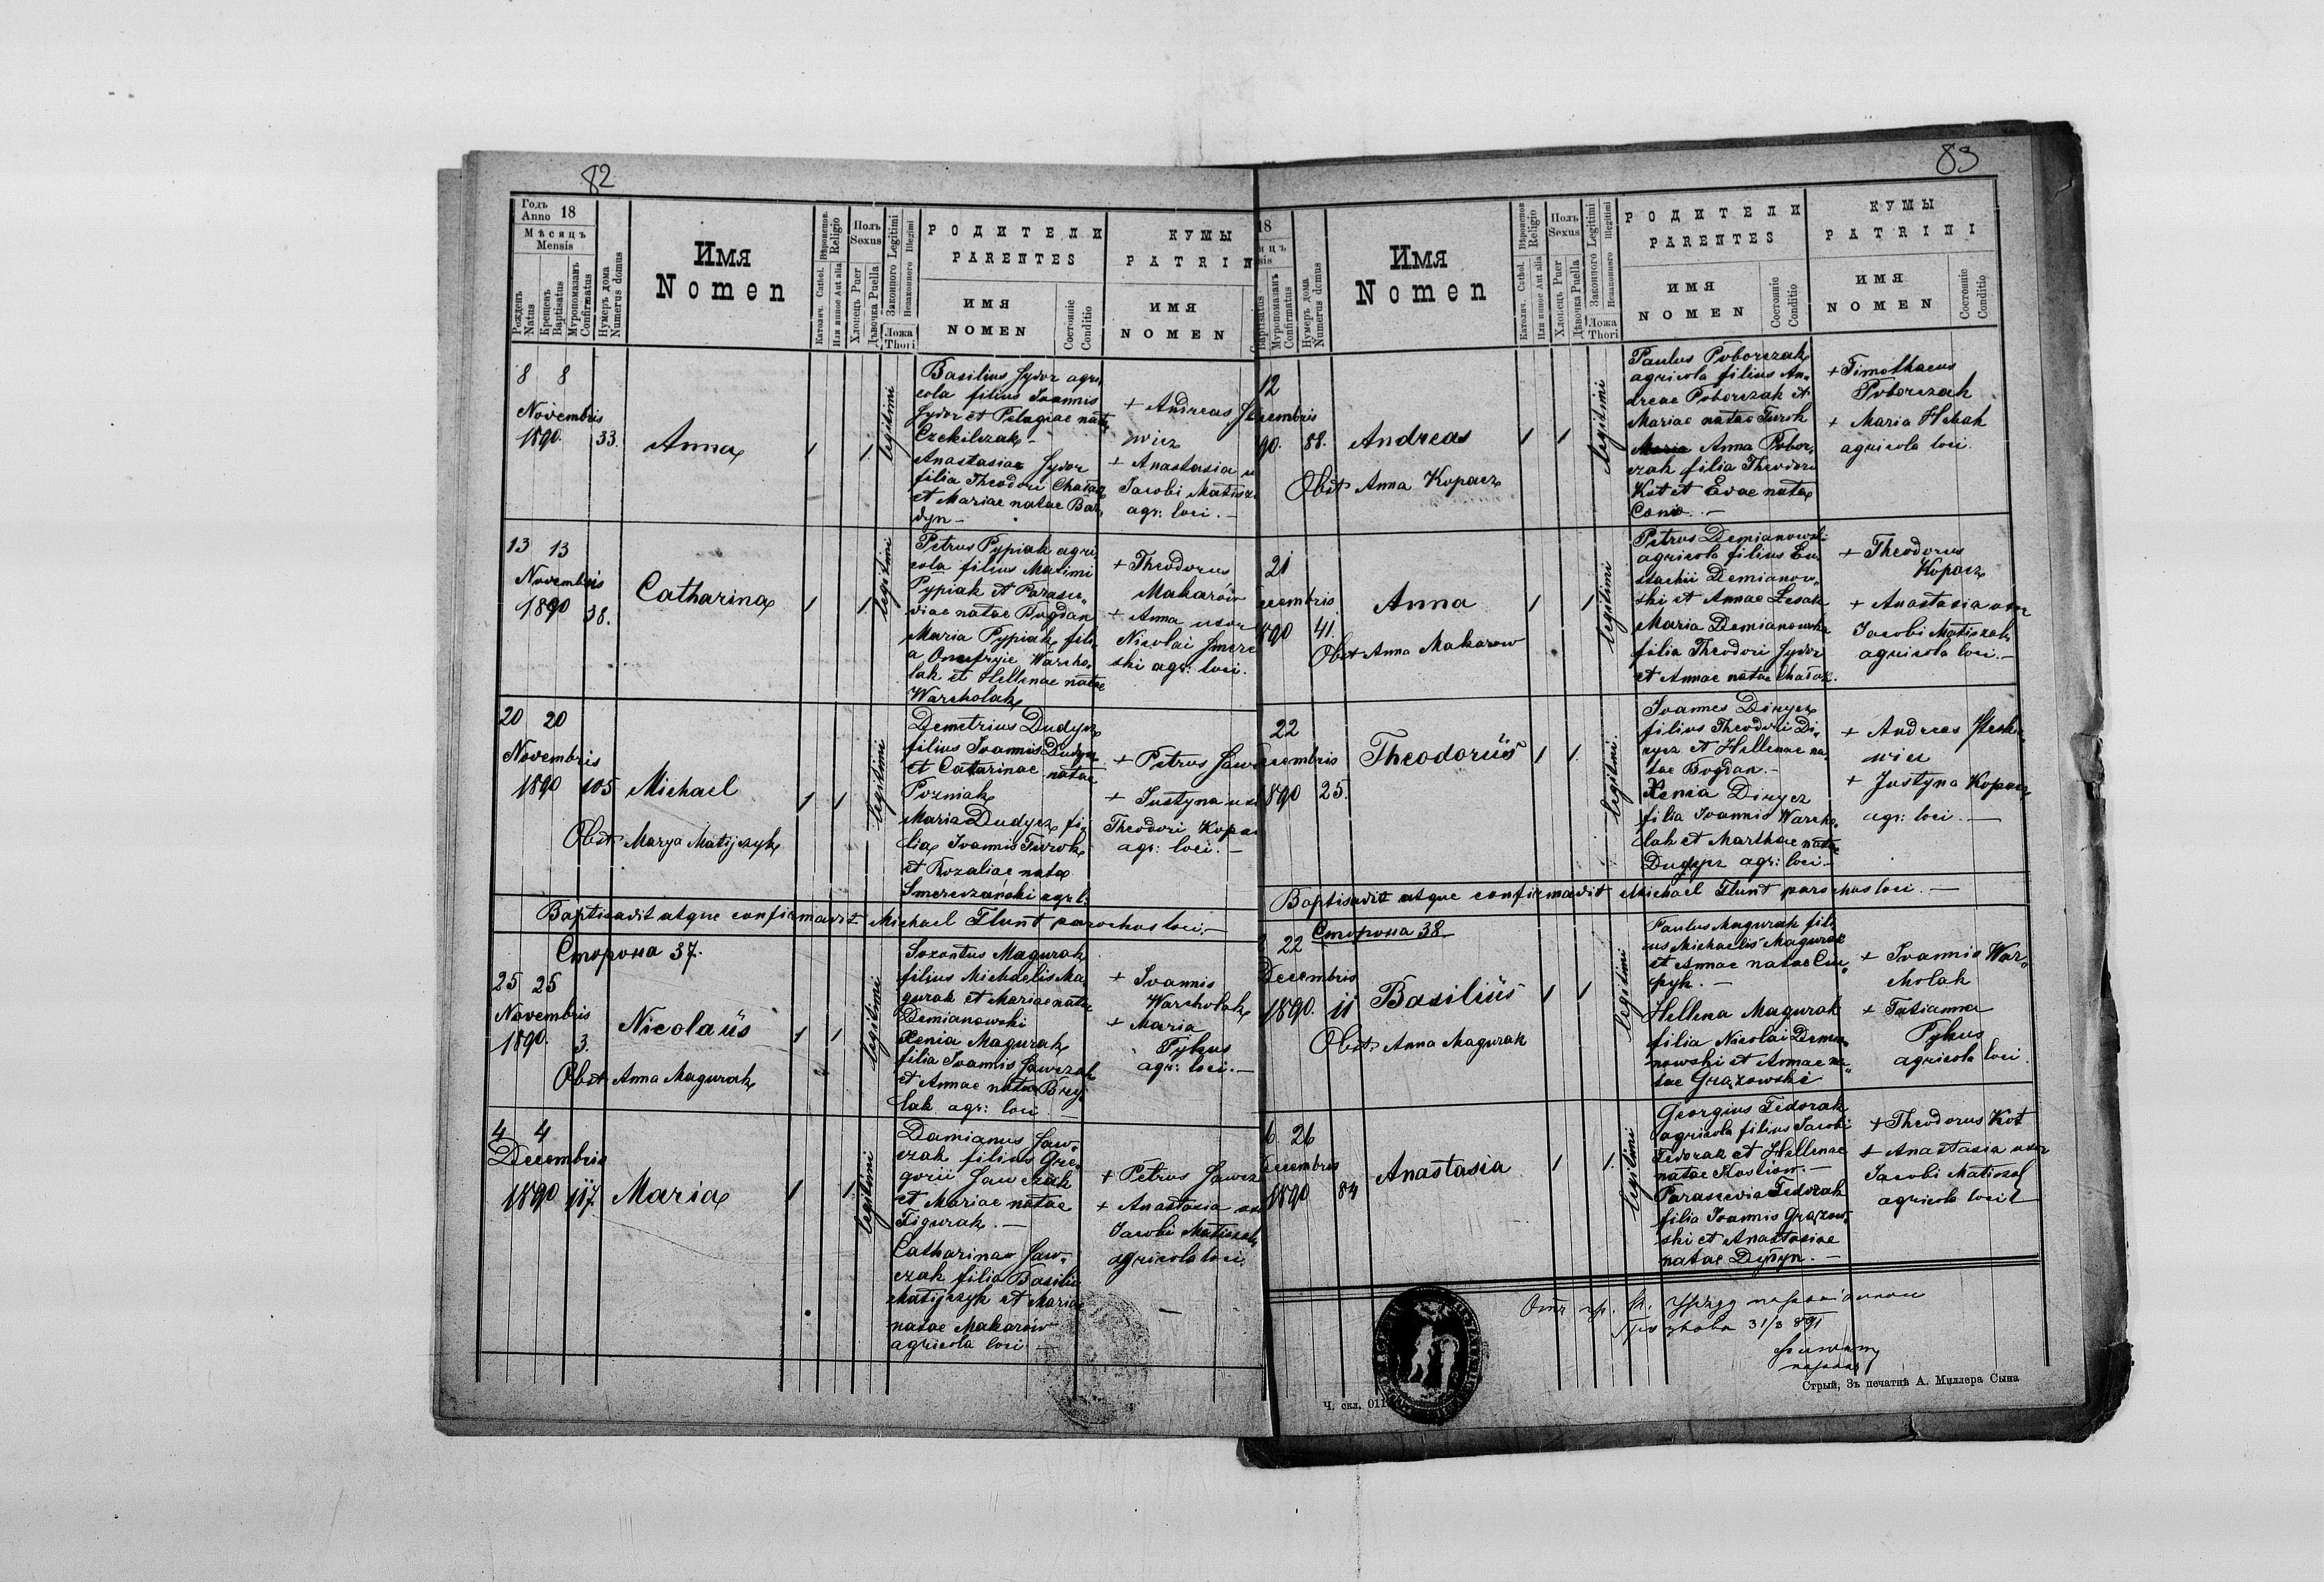 82
Годъ
Anno 18
Мѣсяцъ
Mensis
Рожденъ
Natus
Крещенъ
Baptisatus
Мѵропомазанъ
Confirmatus
Нумеръ дома
Numerus domus
Имя
Nomen
Вѣроиспов.
Religio
Католич. Cathol.
Или иное Aut alia
Полъ
Sexus
Хлопецъ Puer
Дѣвочка Puella
Законного Legitimi
Незаконного Illegitimi
Ложа
Thori
РОДИТЕЛИ
PARENTES
ИМЯ
NOMEN
Состояніе
Conditio
КУМЫ
PATRIN
ИМЯ
NOMEN
8 8
Novembris
1890. 33.
Anna
1 1
legitimi
Basilius Sydor agri
cola filius Joannis
Sydor et Pelagiae nat
Czekilczak -
Anastasiae Sydor
filia Theodori Chałak
et Mariae natae Bar
dyn -
+ Andreas
wicz
+ Anastasia u
Jacobi Matisz
agr: loci. -
13 13
Novembris
1890 38.
Catharina
1 1
legitimi
Petrus Pypiak agri
cola filius Maximi
Pypiak et Parasce
viae natae Bogdan
Maria Pypiak fili
a Onufryie Warcho
lak et Hellenae natae
Warcholak
+ Theodorus
Makarów
+ Anna uxor
Nicolai Smere
ski agr: loci.
20 20
Novembris
1890 105
Michael
1 1
legitimi
Obst. Marya Matijczyk
Demetrius Dudycz
filius Joannis Dudycz
et Catarinae natae
Pozniak
Maria Dudycz fi
lia Joannis Turok
et Rozaliae natae
Smereczański agr. l.
+ Petrus Saw
+ Justyna uxo
Theodori Kopa
agr: loci. -
Baptisavit atque confirmavit Michael Flunt parochus loci. -
Сторона 37.
25 25
Novembris
1890. 3.
Nicolaüs
1 1
legitimi
Obst. Anna Magurak
Soxontus Magurak
filius Michaelis Ma
gurak et Mariae natae
Demianowski
Xenia Magurak
filia Joannis Sawczak
et Annae natae Bryj
lak agr: loci
+ Joannis
Warcholak
+ Maria
Pykus
agr: loci. -
4 4
Decembris
1890 117.
Maria
1 1
legitimi
Damianus Saw
czak filius Gre
gorii Sawczak
et Mariae natae
Figurak. -
Catharina Saw
czak filia Basilii
Matijczyk et Mariae
natae Makarów
agricola loci -
+ Petrus Sawcz
+ Anastasia ux
Jacobi Matiszak
agricola loci.
83
18
Baptisatus
Мѵропомазанъ
Confirmatus
Нумеръ дома
Numerus domus
Имя
Nomen
Вѣроиспов
Religio
Католич. Cathol.
Или иное Aut alia
Полъ
Sexus
Хлопецъ Puer
Дѣвочка Puella
Законного Legitimi
Незаконного Illegitimi
Ложа
Thori
РОДИТЕЛИ
PARENTES
ИМЯ
NOMEN
Состояніе
Conditio
КУМЫ
PATRINI
ИМЯ
NOMEN
Состояніе
Conditio
12
cembris
90. 88.
Andreas
1 1
legitimi
Obst Anna Kopacz
Paulus Poborczak
agricola filius An
dreae Poborczak et
Mariae natae Turok
Maria Anna Pobor
czak filia Theodori
Kot et Evae natae
+ Timothaeus
Poborczak
+ Maria
agricola loci.
21
cembris
890 41.
Anna
1 1
legitimi
Obst Anna Makarow
Petrus Demianowski
agricola filius Eu
stachii Demianow
ski et Annae Lesak
Maria Demianowska
filia Theodori Sydor
et Annae natae Chałak.
+ Theodorus
Kopacz
+ Anastasia uxor
Jacobi Matiszak
agricola loci. -
22
cembris
890 25.
Theodorüs
1 1
legitimi.
Joannes Dinycz
filius Theodori Di
nycz et Hellenae na
tae Bogdan. -
Xenia Dinycz
filia Joannis Warcho
lak et Marthae natae
Dudycz agr: loci -
+ Andreas
wicz
+ Justyna Kopacz
agr: loci. -
Baptisavit atque confirmavit Michael Flunt parochus loci. -
Сторона 38
22
Decembris
1890. 11
Basiliüs
1 1
legitimi
Obst. Anna Magurak
Paulus Magurak fili
us Michaelis Magurak
et Annae natae Cu
pyk. -
Hellena Magurak
filia Nicolai Demia
nowski et Annae na
tae Grązowski
+ Joannis War
cholak
+ Tatianna
Pykus
agricola loci.
6 26
ecembris
1890 84
Anastasia
1 1.
legitimi
Georgius Fedorak
agricola filius Jacobi
Fedorak et Hellenae
natae Kostiow. -
Parascevia Fedorak
filia Joannis Grązow
ski et Anastasiae
natae Dytyn. -
+ Theodorus Kot
+ Anastasia uxor
Jacobi Matiszak
agricola loci
Отъ гр. к. уряду
31/3 891
Ч. скл. 011
Стрый, Зъ печатнѣ А. Миллера Сына